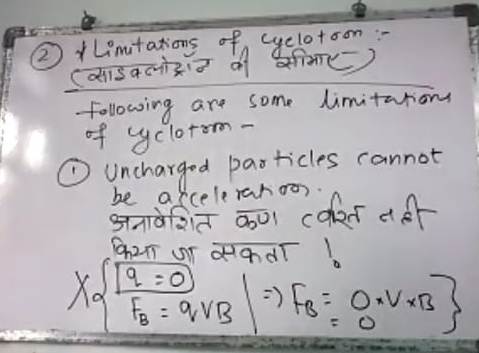 ② * Limitations of Cyclotron :-
(साइक्लोट्रान की सीमाएं)
following are some limitations
of cyclotron -
① Uncharged particles cannot
be acceleration.
अनावेशित कण त्वरित नही
किया जा सकता !
X { q = 0
F_B = qVB | => F_B = 0 × V × B }
= 0